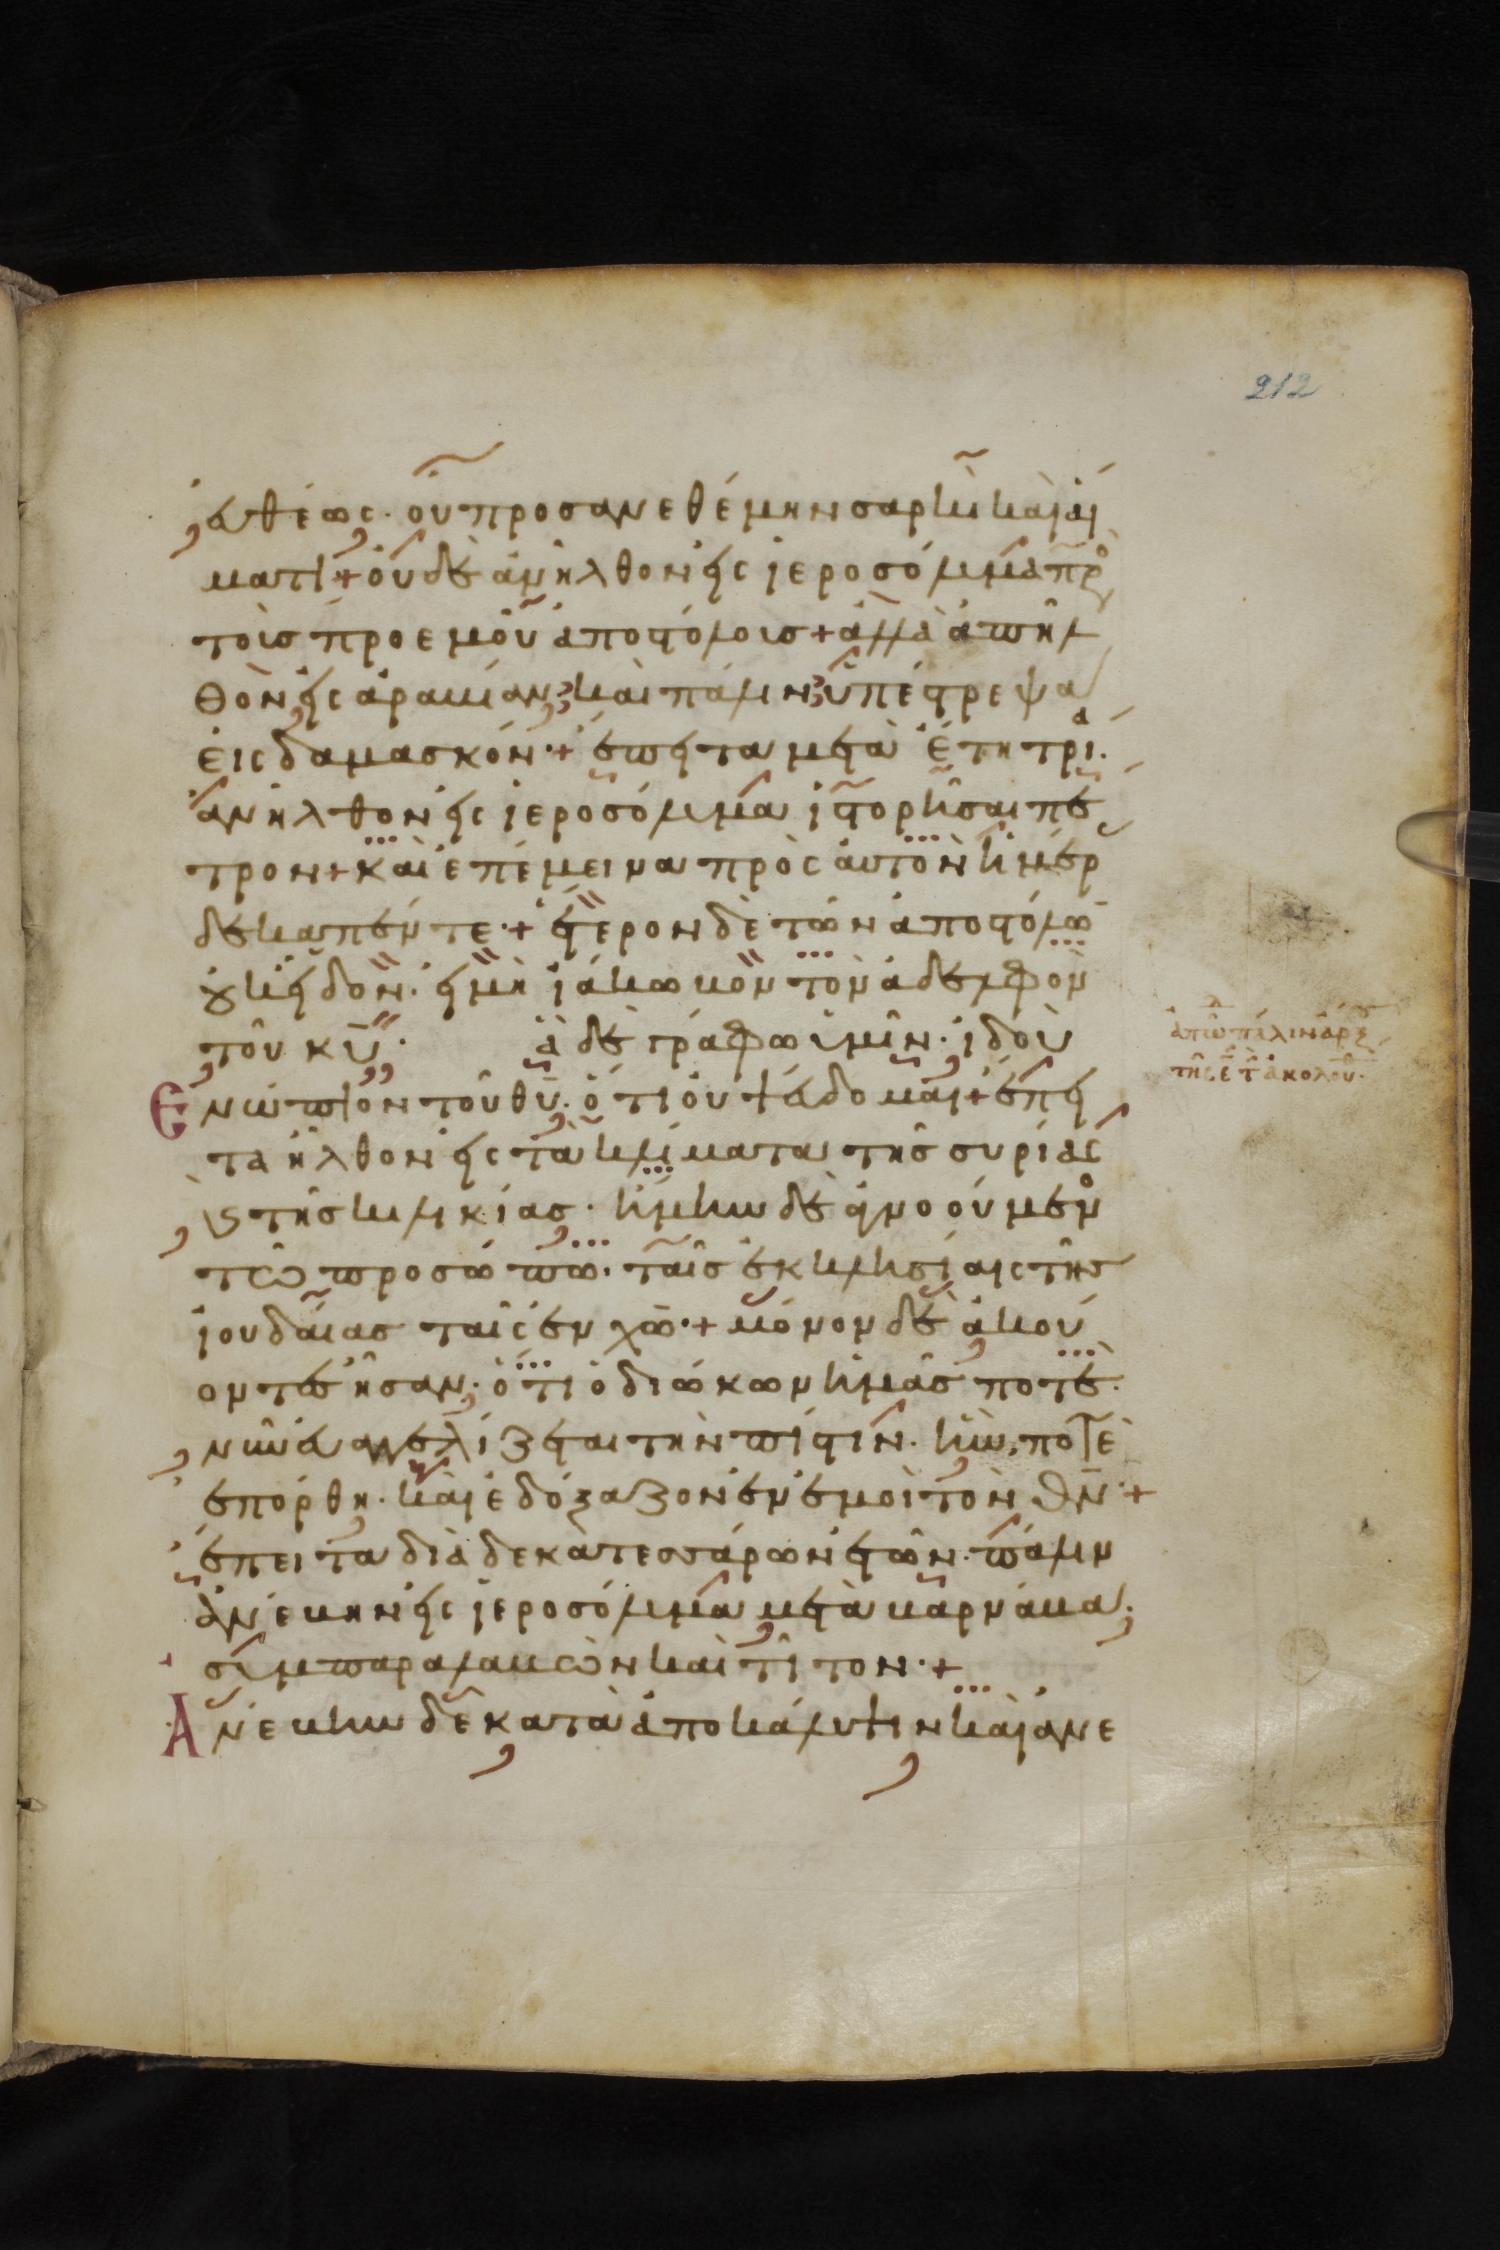 212
ευθέως· οὐ προσανεθέμην σαρκὶ καὶ αἵ
ματι + οὐδὲ ἀνῆλθον εἰς ἱεροσόλυμα πρὸ
τοὺς πρὸ ἐμοῦ ἀποστόλους + ἀλλὰ ἀπῆλ
θον εἰς ἀραβίαν· καὶ πάλιν ὑπέστρεψα
εἰς δαμασκόν·+ ἔπειτα μετὰ ἔτη τρία·
ἀνῆλθον εἰς ἱεροσόλυμα ἱστορῆσαι πέ
τρον + καὶ ἐπέμεινα πρὸς αὐτὸν ἡμέρ
δεκαπέντε·+ ἕτερον δὲ τῶν ἀποστόλω̄
οὐκ εἶδον· εἰ μὴ ἰάκωβον τὸν ἀδελφὸν
τοῦ κ̄ῡ· ἃ δὲ γράφω ὑμῖν· ἰδοὺ
Ενώπιον τοῦ θ̄ῡ· ὅτι οὐ ψεύδομαι + ἔπει
τα ἦλθον εἰς τὰ κλίματα τῆς συρίας
ϗ τῆς κιλικίας· ἤμην δὲ ἀγνοούμενο
τῶ προσώπω· ταῖς ἐκκλησίαις τῆς
ἰουδαίας ταῖς ἐν χ̄ω̄·+ μόνον δὲ ἀκού
οντες ἦσαν· ὅτι ὁ διώκων ἡμᾶς ποτὲ·
νῦν εὐαγγελίζεται τὴν πίστιν· ἥν ποτὲ
ἐπόρθη· καὶ ἐδόξαζον ἐν ἐμοὶ τὸν θ̄ν̄ +
ἔπειτα διὰ δεκατεσσάρων ἐτῶν· πάλιν
ἀνέβην εἰς ἱεροσόλυμα μετὰ βαρνάβα·
συμπαραλαβὼν καὶ τίτον·+
Ἀνέβην δὲ κατὰ ἀποκάλυψιν καὶ ἀνε
πάλιν